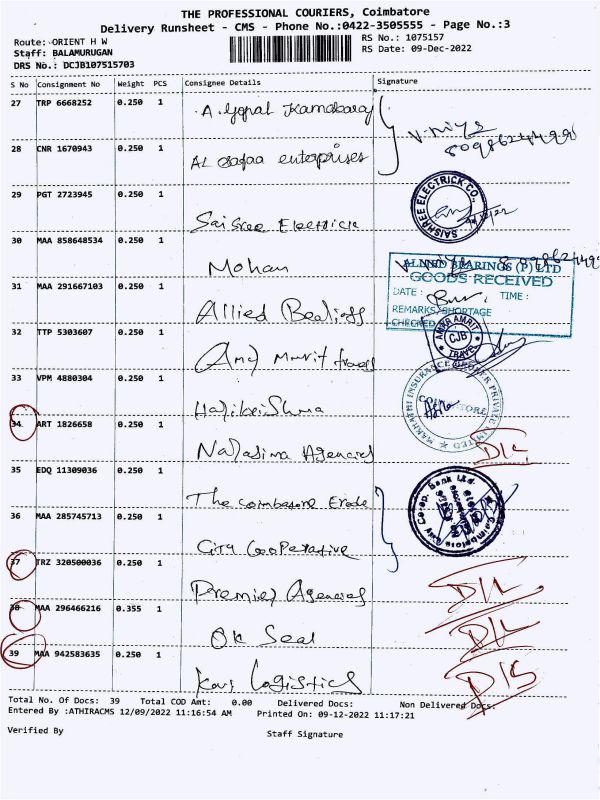 THE PROFESSIONAL COURIERS, Coimbatore
Delivery Runsheet - CMS - Phone No.:0422-3505555 - Page No.:3
Route: ORIENT H W
RS No.: 1075157
Staff: BALAMURUGAN
RS Date: 09-Dec-2022
DRS No.: DCJB107515703
S No Consignment No Weight PCS Consignee Details Signature
27 TRP 6668252 0.250 1
A. Gopal Kamabaraj
28 CNR 1670943 0.250 1
AL Safaa enterprises
29 PGT 2723945 0.250 1
SAISHREE ELECTRICK CO.,
Saisree Electrick
30 MAA 858648534 0.250 1
Mohan
ALLIED BEARINGS (P) LTD
GOODS RECEIVED
31 MAA 291667103 0.250 1
DATE : TIME :
Allied
REMARKS/SHORTAGE
CHECKED
32 TTP 5303607 0.250 1
AMAR AMRIT
CJB
TRAVEL
travels
33 VPM 4880304 0.250 1
INSURANCE BROKER PRIVATE LIMITED
34 ART 1826658 0.250 1
Agencies D/L
35 EDQ 11309036 0.250 1
The Coimbatore Erode
Co-op. Bank Ltd.
Coimbatore
36 MAA 285745713 0.250 1
City Cooperative
37 TRZ 320500036 0.250 1
Premier Agencies D/L
38 MAA 296466216 0.355 1
OK Seal D/L
39 MAA 942583635 0.250 1
Logistics D/S
Total No. Of Docs: 39 Total COD Amt: 0.00 Delivered Docs: Non Delivered Docs:
Entered By :ATHIRACMS 12/09/2022 11:16:54 AM Printed On: 09-12-2022 11:17:21
Verified By Staff Signature